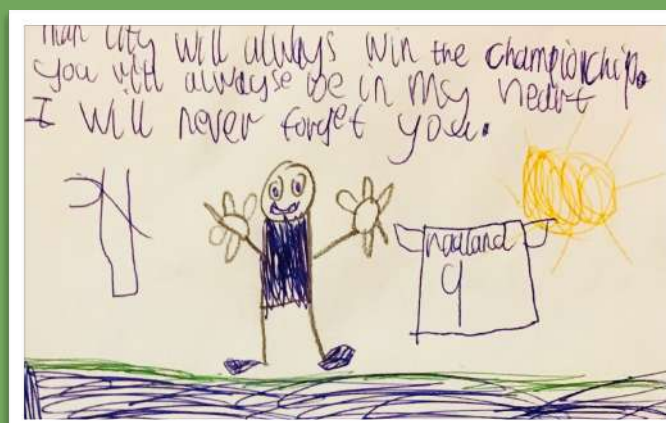 Man City will always win the championchip.
you will alwayse be in my heart
I will never forget you.
Haaland
9